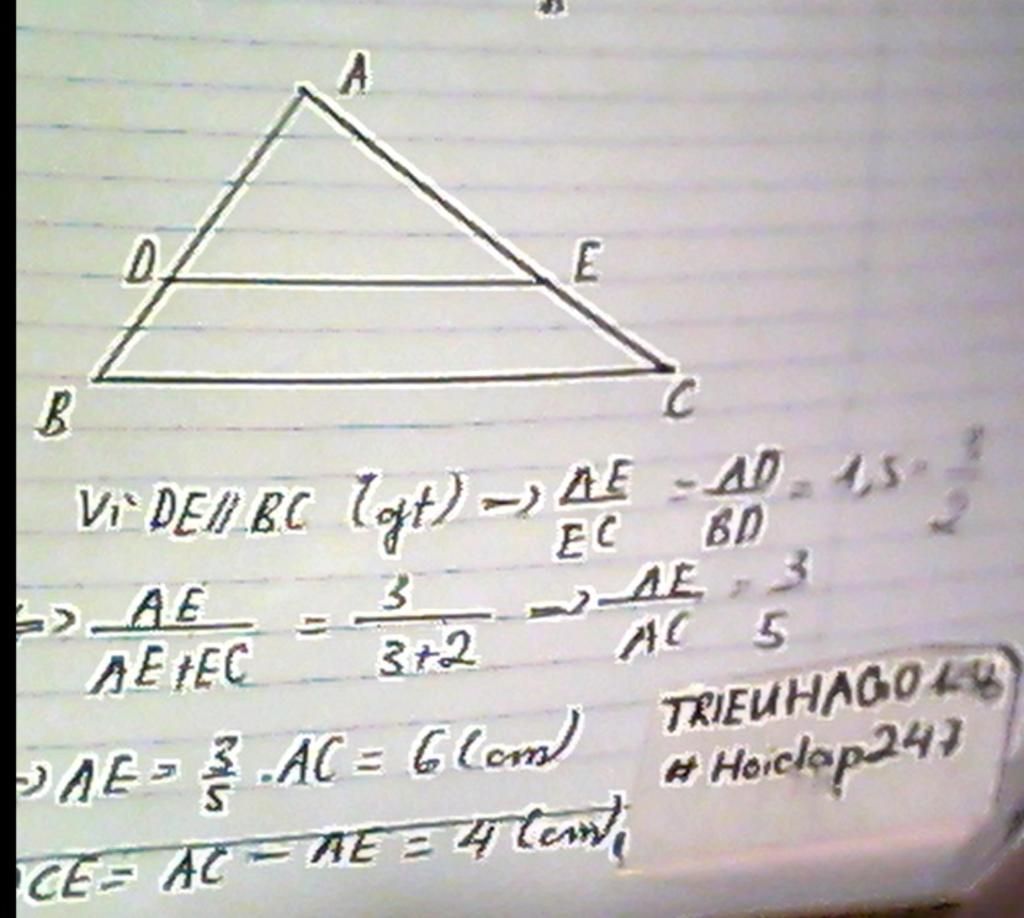 A
D
E
B
C
Vì DE // BC (gt) → AE/EC = AD/BD = 1,5 = 3/2
↔ AE/AE+EC = 3/3+2 → AE/AC = 3/5
→ AE = 3/5 . AC = 6 (cm)
CE = AC - AE = 4 (cm)
TRIEUHAGO
# Hoidap247